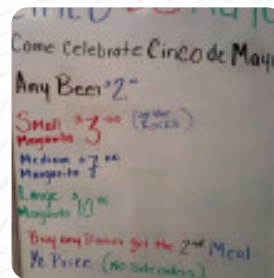 Cinco de Mayo
Come Celebrate Cinco de Mayo
Any Beer $2
Small Margarita $3.00 (on the ROCKS)
Medium Margarita $7.00
Large Margarita $10.00
Buy any Dinner get the 2nd Meal
½ Price (No Side orders)